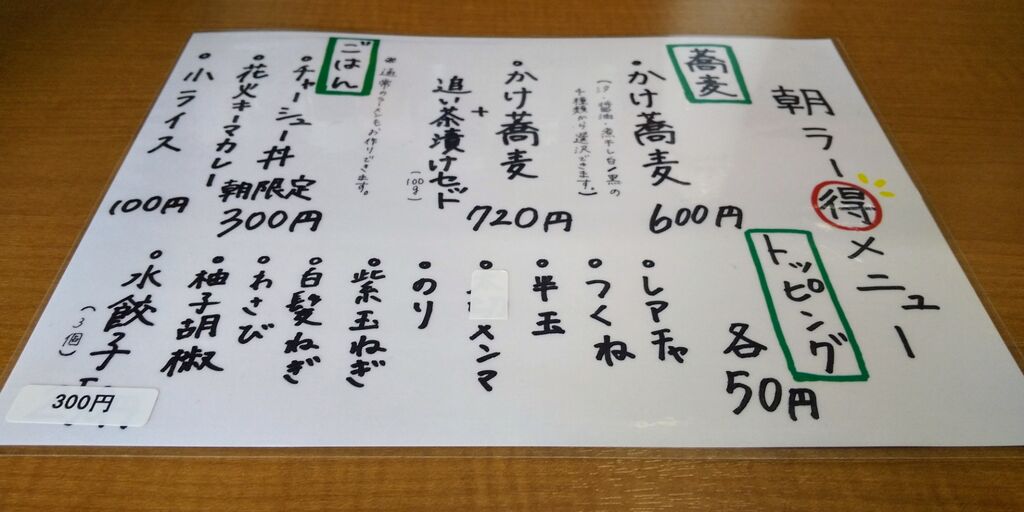 朝ラー得メニュー
蕎麦
・かけ蕎麦
(汁・醤油・煮干し白/黒の
4種類から選択できます。)
600円
・かけ蕎麦
+
追い茶漬けセット
(100g)
720円
※通常のラーメンもお作りできます。
ごはん
・チャーシュー丼
・花火キーマカレー
朝限定
300円
・小ライス
100円
トッピング
各
50円
・レアチャ
・つくね
・半玉
・メンマ
・のり
・紫玉ねぎ
・白髪ねぎ
・わさび
・柚子胡椒
・水餃子
(3個)
300円